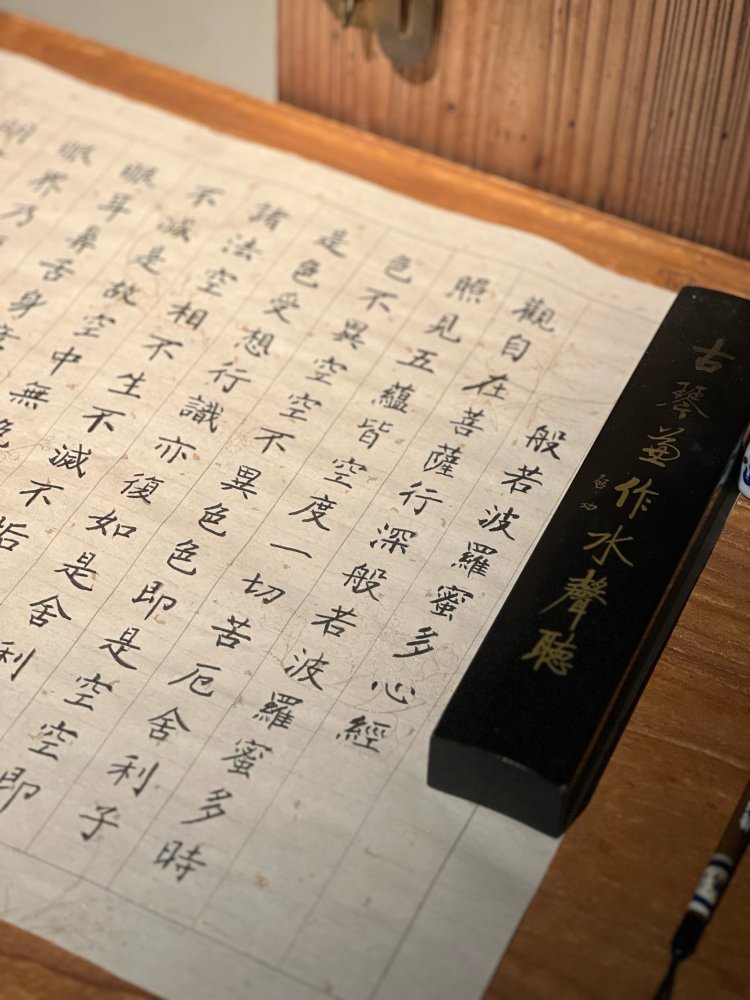 般若波羅蜜多心經
觀自在菩薩行深般若波羅蜜多時
照見五蘊皆空度一切苦厄舍利子
色不異空空不異色色即是空空即
是色受想行識亦復如是舍利
諸法空相不生不滅不垢
不減是故空中無色
眼耳鼻舌身意
眼界乃
古琴兼作水聲聽
啟功